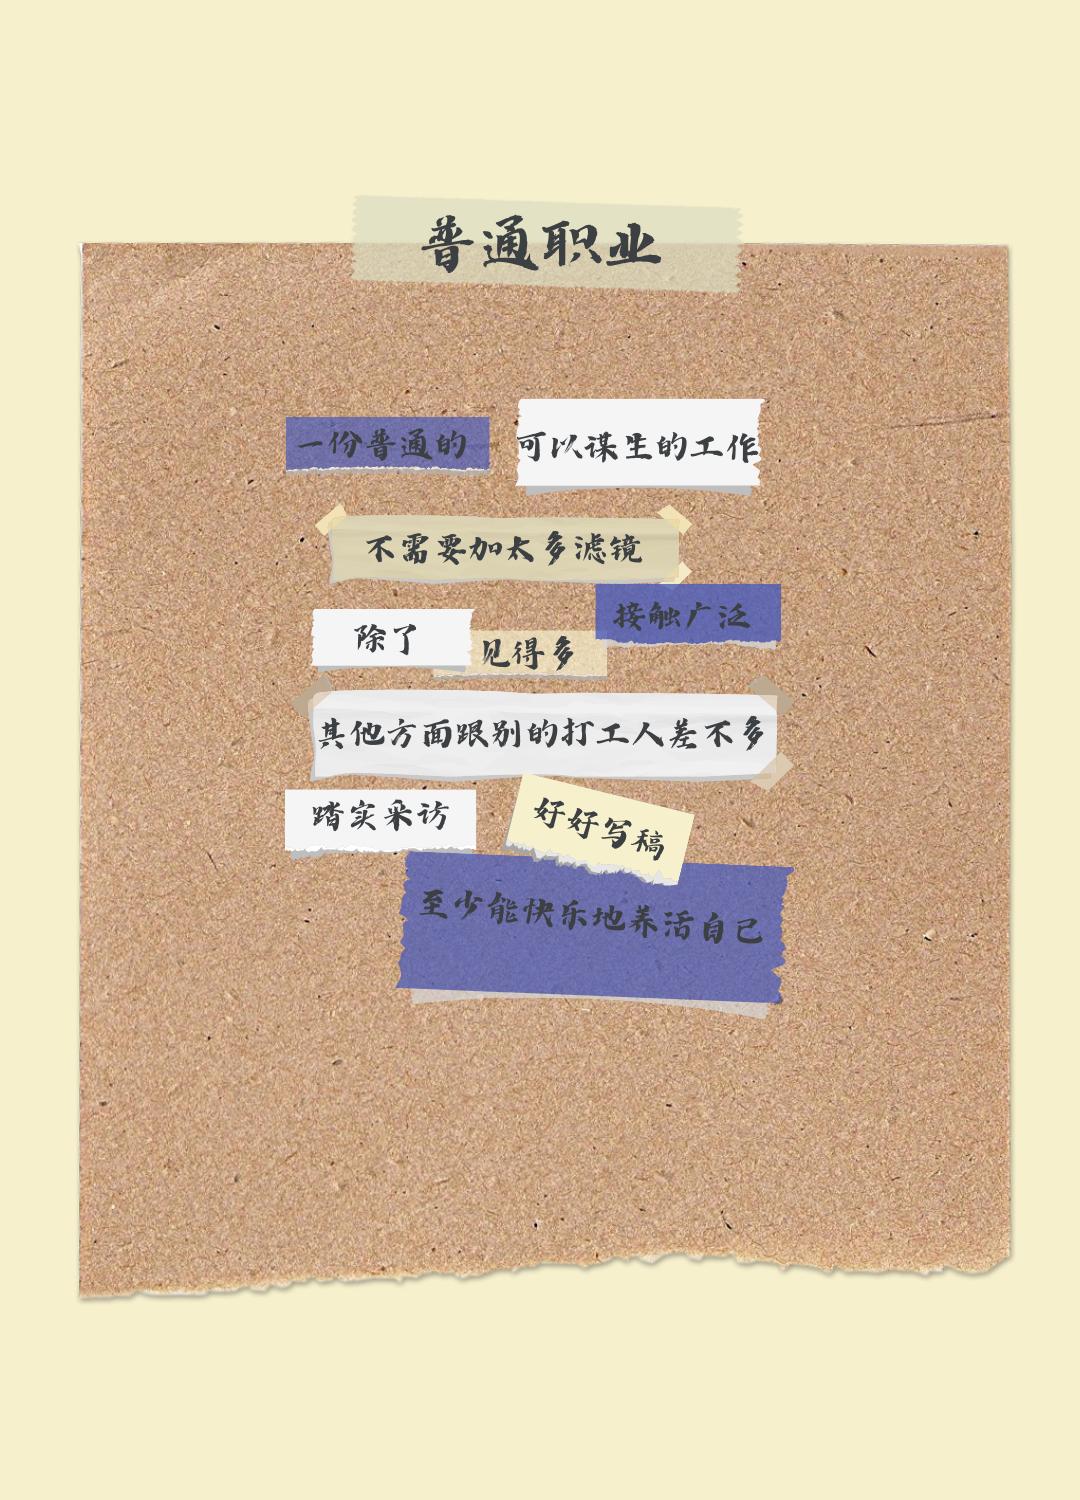 普通职业
一份普通的 可以谋生的工作
不需要加太多滤镜
除了 见得多 接触广泛
其他方面跟别的打工人差不多
踏实采访 好好写稿
至少能快乐地养活自己